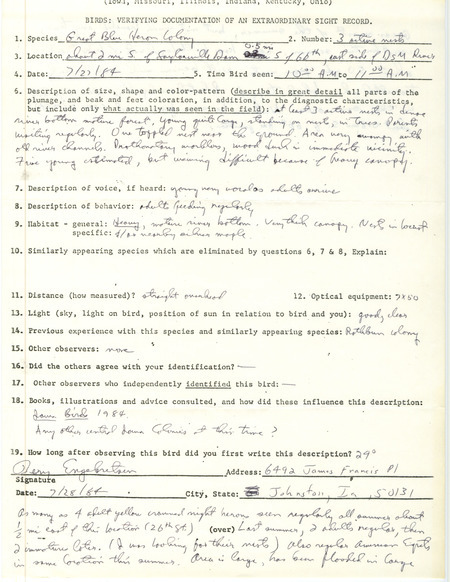 (Iowa, Missouri, Illinois, Indiana, Kentucky, Ohio)
BIRDS: VERIFYING DOCUMENTATION OF AN EXTRAORDINARY SIGHT RECORD.
1. Species Great Blue Heron Colony 2. Number: 3 active nests
3. Location about 2 mi S. of Saylorville Dam 0.5 mi S of 66th, east side of DsM River
4. Date: 7/27/84 5. Time Bird seen: 10 00 A.M to 11 00 A.M.
6. Description of size, shape and color-pattern (describe in great detail all parts of the
plumage, and beak and feet coloration, in addition to the diagnostic characteristics,
but include only what actually was seen in the field): at least 3 active nests in dense
river bottom mature forest, young quite large, standing on nests, in trees. Parents
visiting regularly. One toppled nest near the ground. Area very swampy with
old river channels. Prothonotary warblers, wood duck in immediate vicinity.
Five young estimated, but viewing difficult because of heavy canopy.
7. Description of voice, if heard: young very vocal as adults arrive
8. Description of behavior: adults feeding regularly
9. Habitat - general: Heavy, mature river bottom. Very thick canopy. Nests in
specific: nearby silver maple
10. Similarly appearing species which are eliminated by questions 6, 7 & 8, Explain:
11. Distance (how measured)? straight overhead 12. Optical equipment: 7x50
13. Light (sky, light on bird, position of sun in relation to bird and you): good, clear
14. Previous experience with this species and similarly appearing species: Rathbun colony
15. Other observers: none
16. Did the others agree with your identification? —
17. Other observers who independently identified this bird: —
18. Books, illustrations and advice consulted, and how did these influence this description:
Iowa Birds 1984.
Any other central Iowa Colonies at this time?
19. How long after observing this bird did you first write this description? 24°
Engebretsen Address: 6492 James Francis Pl
Signature
Date: 7/28/84 City, State: Johnston, Ia, 50131
As many as 4 adult yellow crowned night herons seen regularly all summer about
½ mi east of this location (26th St) (over) Last summer, 2 adults regular, then
2 immature later. (I was looking for their nests) Also regular American Egrets
in same location this summer. Area is large, has been flooded in large